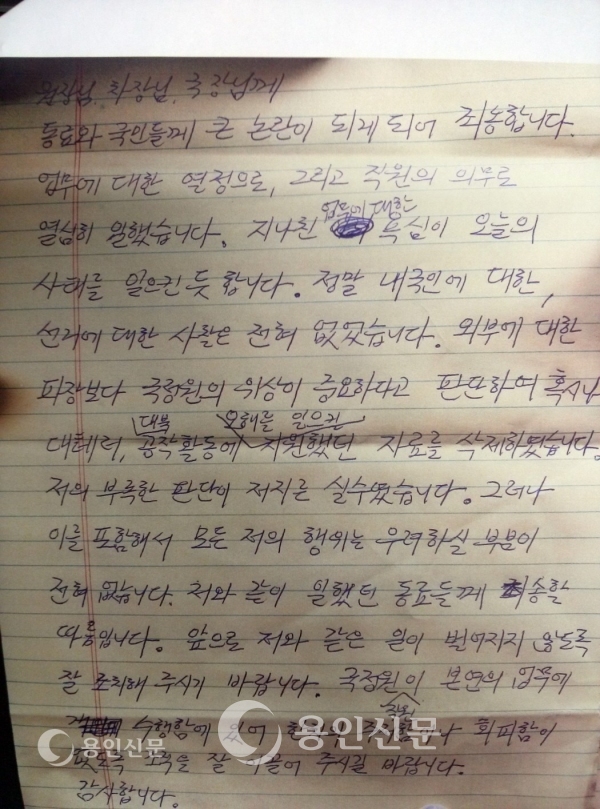 원장님, 차장님, 국장님께
동료와 국민들께 큰 논란이 되게 되어 죄송합니다.
업무에 대한 열정으로, 그리고 직원의 의무로
업무에 대한
열심히 일했습니다. 지나친 욕심이 오늘의
사태를 일으킨 듯 합니다. 정말 내국인에 대한,
선거에 대한 사찰은 전혀 없었습니다. 외부에 대한
파장보다 국정원의 위상이 중요하다고 판단하여 혹시나
대북 오해를 일으킨
대테러, 공작활동에 지원했던 자료를 삭제하였습니다.
저의 부족한 판단이 저지른 실수였습니다. 그러나
이를 포함해서 모든 저의 행위는 우려하실 부분이
전혀 없습니다. 저와 같이 일했던 동료들께 죄송할
따름입니다. 앞으로 저와 같은 일이 벌어지지 않도록
잘 조치해 주시기 바랍니다. 국정원이 본연의 업무에
수행함에 있어 한치의 회피함이
없도록 조직을 잘 이끌어 주시길 바랍니다.
감사합니다.
용인신문
용인신문
용인신문